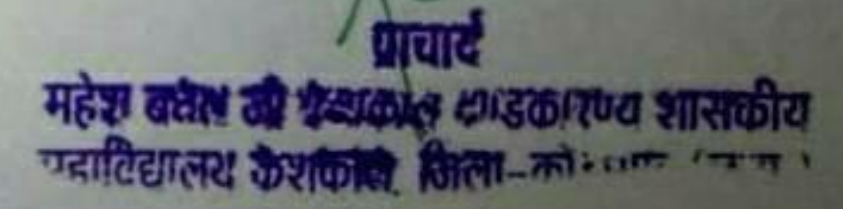 प्राचार्य
महेश बघेल जी दण्डकारण्य शासकीय
महाविद्यालय केशकाल, जिला-